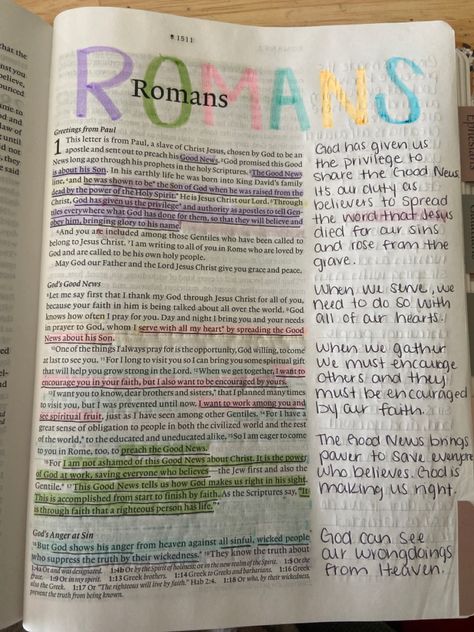 1511
ROMANS
Romans
Greetings from Paul
1 This letter is from Paul, a slave of Christ Jesus, chosen by God to be an
apostle and sent out to preach his Good News. 2God promised this Good
News long ago through his prophets in the holy Scriptures. 3The Good News
is about his Son. In his earthly life he was born into King David's family
line, 4and he was shown to be* the Son of God when he was raised from the
dead by the power of the Holy Spirit.* He is Jesus Christ our Lord. 5Through
Christ, God has given us the privilege* and authority as apostles to tell Gen-
tiles everywhere what God has done for them, so that they will believe and
obey him, bringing glory to his name.
6And you are included among those Gentiles who have been called to
belong to Jesus Christ. 7I am writing to all of you in Rome who are loved by
God and are called to be his own holy people.
May God our Father and the Lord Jesus Christ give you grace and peace.
God's Good News
8Let me say first that I thank my God through Jesus Christ for all of you,
because your faith in him is being talked about all over the world. 9God
knows how often I pray for you. Day and night I bring you and your needs
in prayer to God, whom I serve with all my heart* by spreading the Good
News about his Son.
10One of the things I always pray for is the opportunity, God willing, to come
at last to see you. 11For I long to visit you so I can bring you some spiritual gift
that will help you grow strong in the Lord. 12When we get together, I want to
encourage you in your faith, but I also want to be encouraged by yours.
13I want you to know, dear brothers and sisters,* that I planned many times
to visit you, but I was prevented until now. I want to work among you and
see spiritual fruit, just as I have seen among other Gentiles. 14For I have a
great sense of obligation to people in both the civilized world and the rest
of the world,* to the educated and uneducated alike. 15So I am eager to come
to you in Rome, too, to preach the Good News.
16For I am not ashamed of this Good News about Christ. It is the power
of God at work, saving everyone who believes—the Jew first and also the
Gentile.* 17This Good News tells us how God makes us right in his sight.
This is accomplished from start to finish by faith. As the Scriptures say, "It
is through faith that a righteous person has life."*
God's Anger at Sin
18But God shows his anger from heaven against all sinful, wicked people
who suppress the truth by their wickedness.* 19They know the truth about
1:13 Greek brothers. 1:14 Greek to Greeks and barbarians. 1:16 Greek
also the Greek. 1:17 Or "The righteous will live by faith." Hab 2:4. 1:18 Or who, by their wickedness,
prevent the truth from being known.
God has given us
the privilege to
share the Good News.
its our duty as
believers to spread
the word that Jesus
died for our sins
and rose from the
grave.
When we serve, we
need to do so with
all of our hearts.
When we gather
we must encourage
others and they
must be encouraged
by our faith.
The Good News brings
power to save everyone
who believes. God is
making us right.
God can see
our wrongdoings
from Heaven.